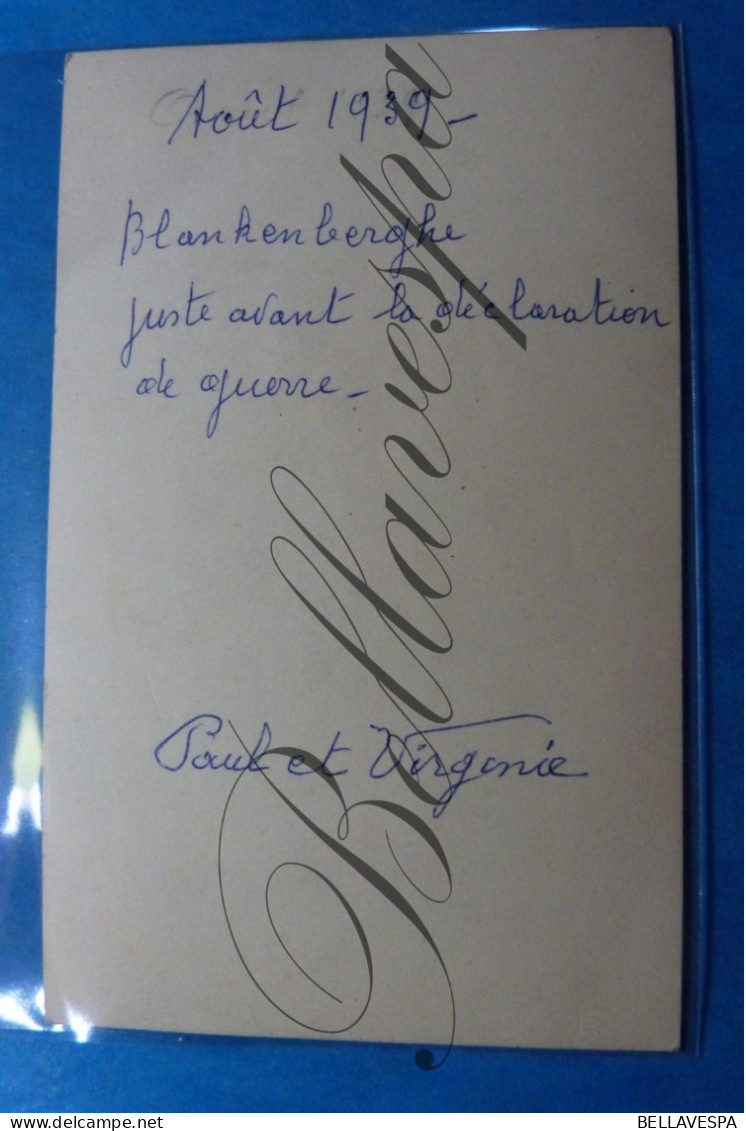 Août 1939 -
Blankenberghe
juste avant la déclaration
de guerre -
Paul et Virginie
Bellavespa
BELLAVESPA